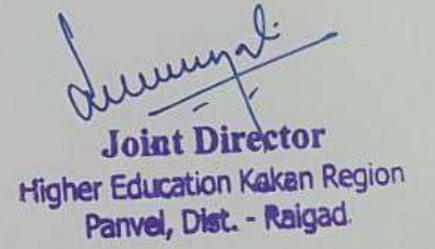 Joint Director
Higher Education Kakan Region
Panvel, Dist. - Raigad.